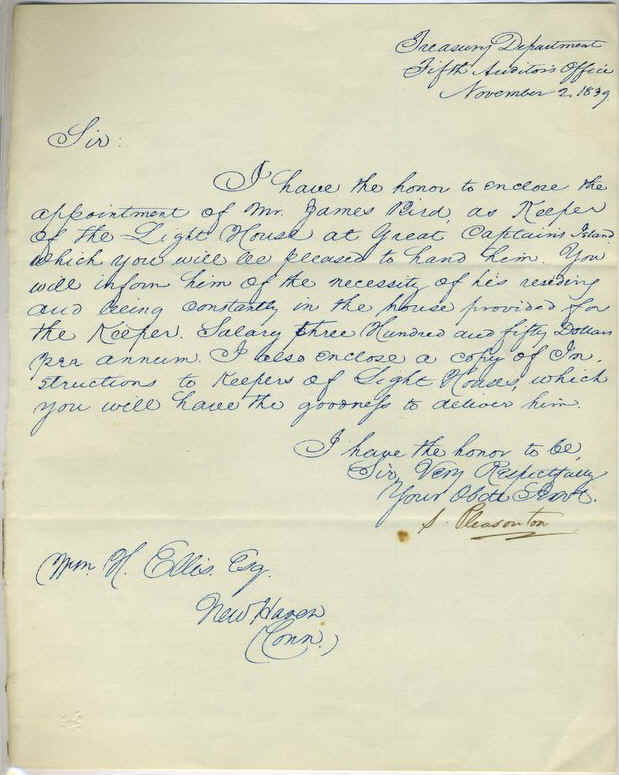 Treasury Department
Fifth Auditor's Office
November 2. 1839
Sir:
I have the honor to enclose the
appointment of Mr. James Bird, as Keeper
of the Light House at Great Captain's Island
which you will be pleased to hand him. You
will inform him of the necessity of his residing
and being constantly in the house provided for
the Keeper. Salary three Hundred and fifty Dollars
per annum. I also enclose a copy of In-
structions to Keepers of Light Houses, which
you will have the goodness to deliver him.
I have the honor to be,
Sir, Very Respectfully
Your Obdt Servt.
S. Pleasonton
Wm. H. Ellis. Esq.
New Haven
(Conn.)